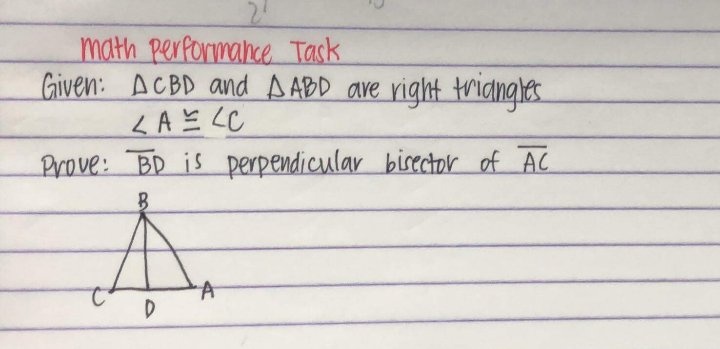 math performance Task
Given: △CBD and △ABD are right triangles
∠A ≅ ∠C
Prove: B̅D̅ is perpendicular bisector of A̅C̅
B
C
A
D